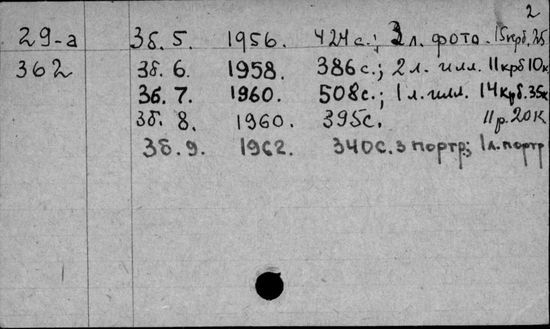 2
29-а 3б. 5. 1956. 424 с.; 3 л. фото. 15крб. 75
362 3б. 6. 1958. 386 с.; 2 л. илл. 11крб 10к
3б. 7. 1960. 508 с.; 1 л. илл. 14крб. 35к
3б. 8. 1960. 395с. 11р. 20к
3б. 9. 1962. 340с. 3 портр; 1л. портр